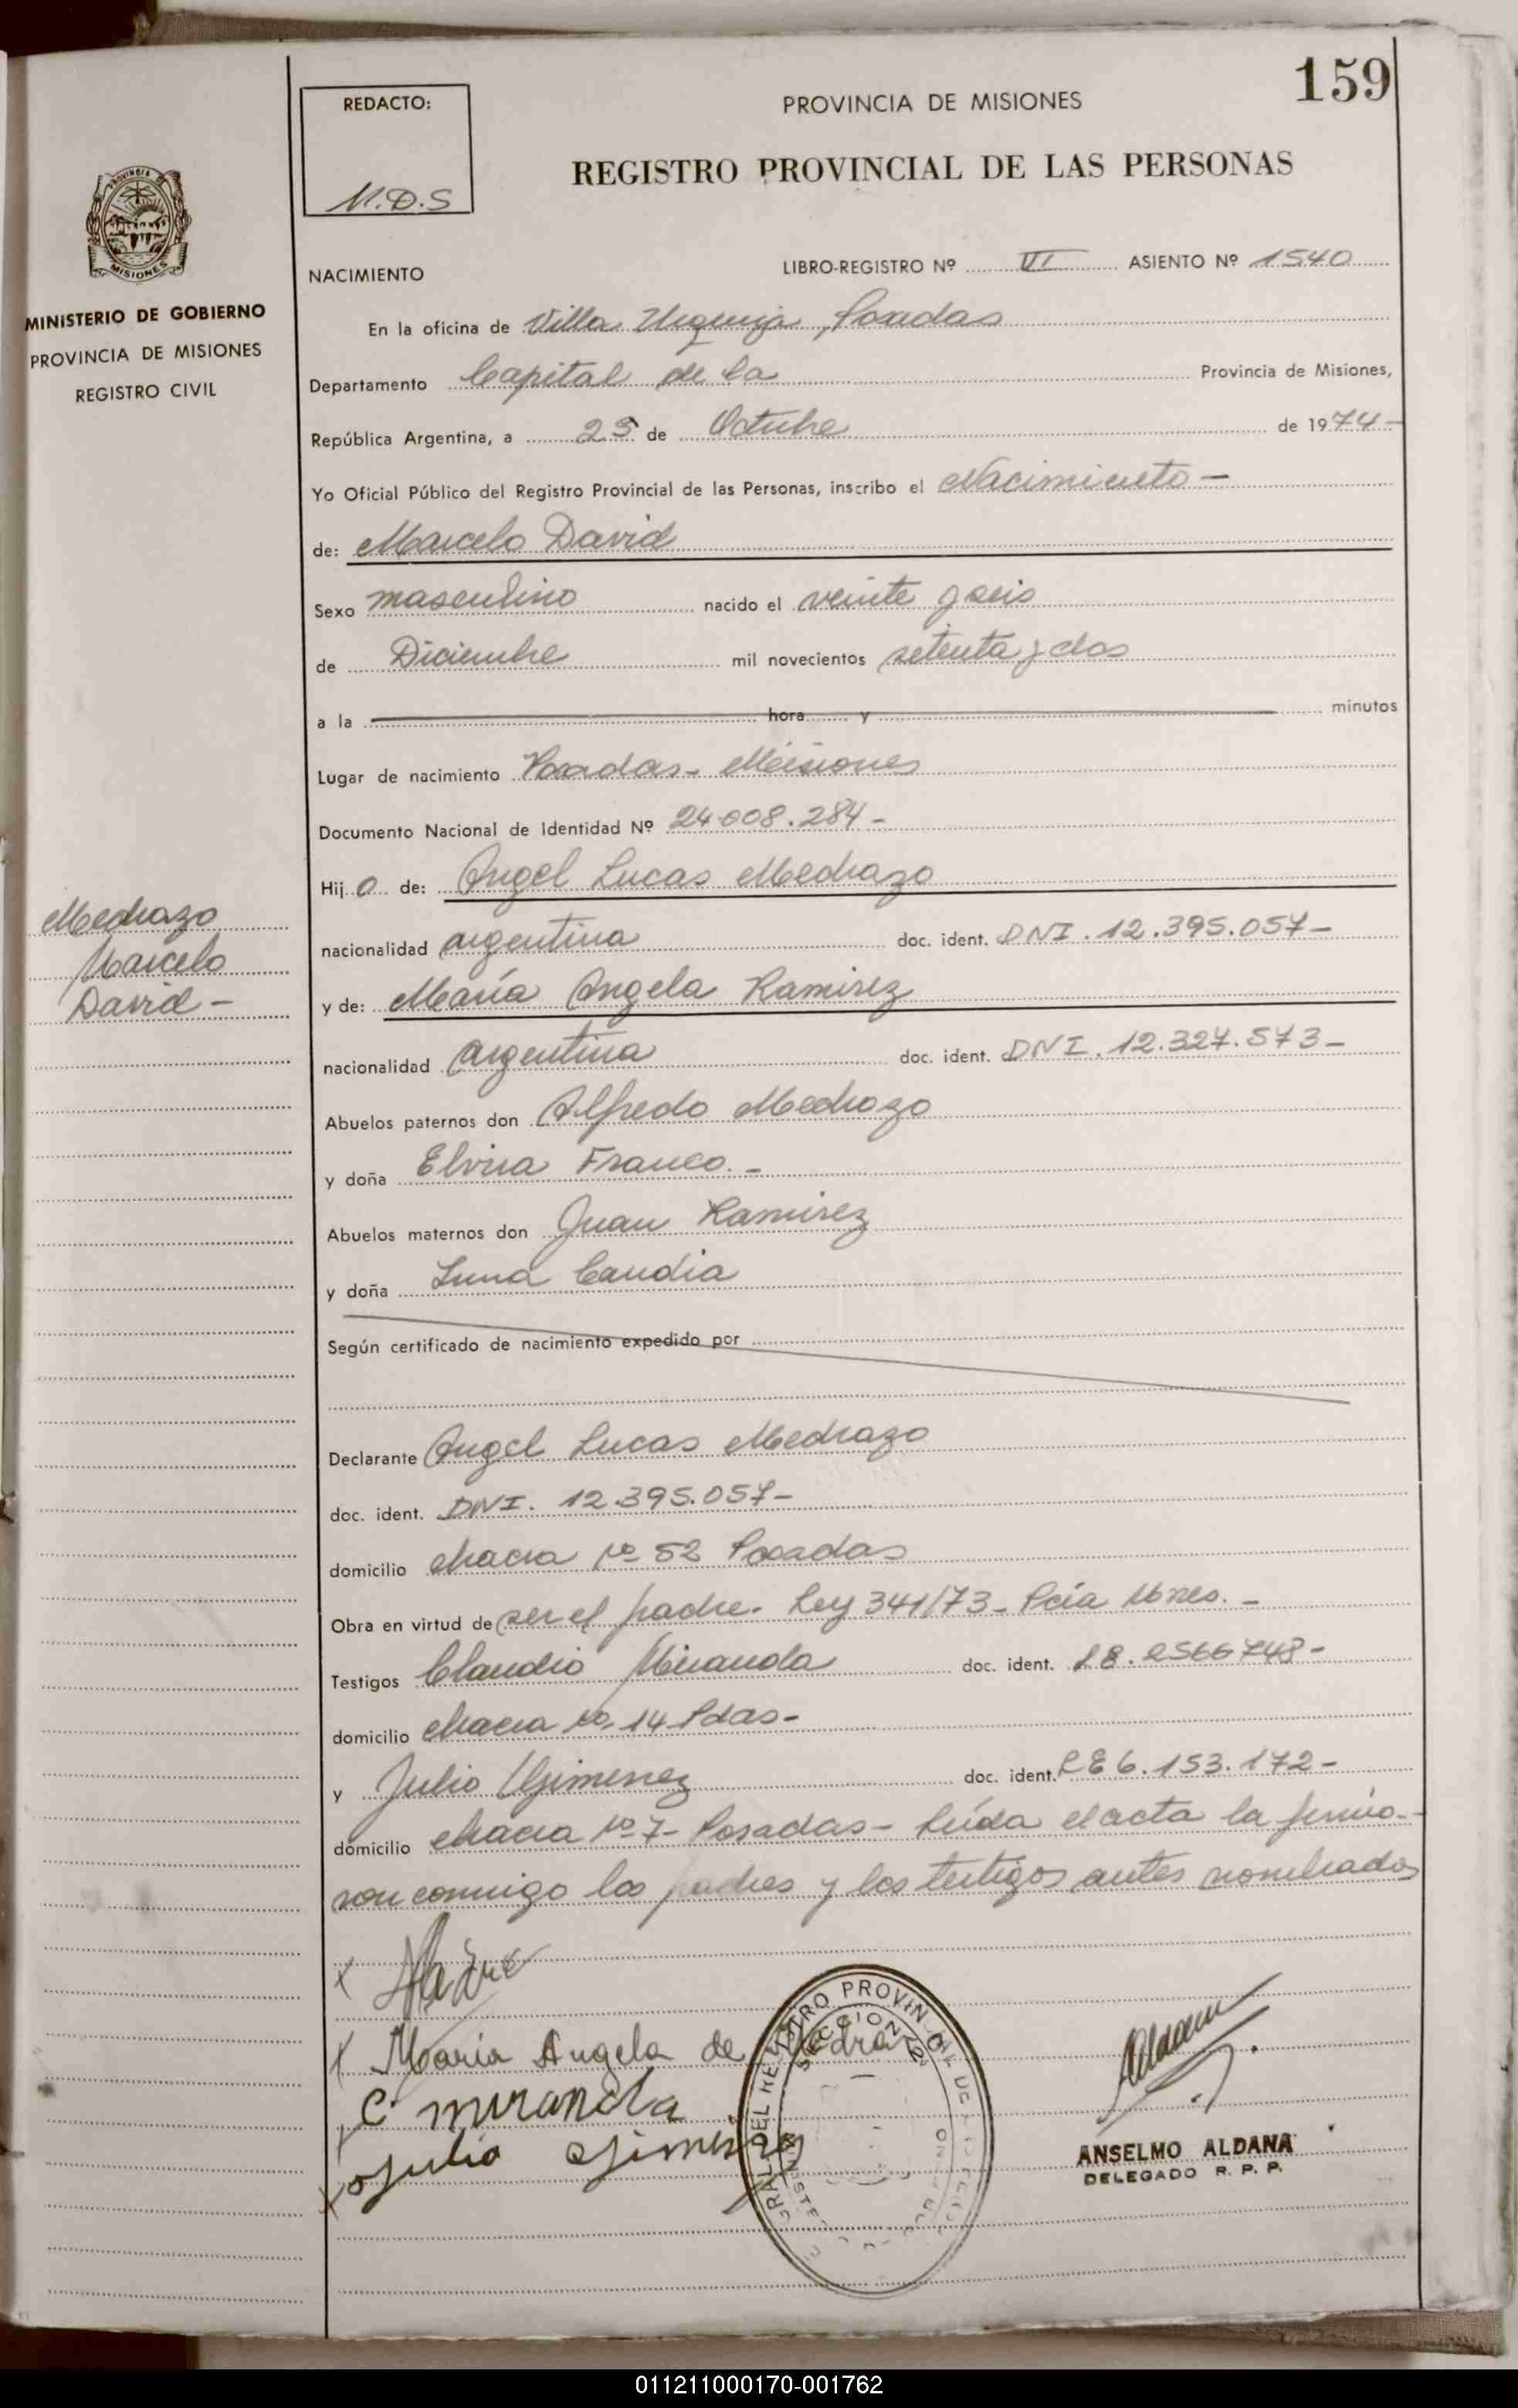 159
REDACTO:
M.D.S
PROVINCIA DE MISIONES
REGISTRO PROVINCIAL DE LAS PERSONAS
PROVINCIA DE
MISIONES
MINISTERIO DE GOBIERNO
PROVINCIA DE MISIONES
REGISTRO CIVIL
NACIMIENTO
LIBRO-REGISTRO Nº VI ASIENTO Nº 1540
En la oficina de Villa Urquiza, Posadas
Departamento Capital de la Provincia de Misiones,
República Argentina, a 25 de Octubre de 1974-
Yo Oficial Público del Registro Provincial de las Personas, inscribo el Nacimiento-
de: Marcelo David
Sexo masculino nacido el veinte y seis
de Diciembre mil novecientos setenta y dos
a la hora y minutos
Lugar de nacimiento Posadas- Misiones
Documento Nacional de Identidad Nº 24.008.284-
Hijo de: Angel Lucas Medrazo
nacionalidad argentina doc. ident. DNI. 12.395.057-
y de: María Angela Ramirez
nacionalidad argentina doc. ident. DNI. 12.327.573-
Abuelos paternos don Alfredo Medrazo
y doña Elvira Franco.-
Abuelos maternos don Juan Ramirez
y doña Luna Candia
Según certificado de nacimiento expedido por
Declarante Angel Lucas Medrazo
doc. ident. DNI. 12.395.057-
domicilio chacra Nº 52 Posadas
Obra en virtud de ser el padre. Ley 341/73- Pcia Mnes.-
Testigos Claudio Miranda doc. ident. 2566748-
domicilio chacra No. 14 Pdas-
y Julio Gimenez doc. ident. LE 6.153.172-
domicilio chacra Nº 7- Posadas- Leída el acta la firma-
ron conmigo los padres y los testigos antes nombrados
Medrazo
Marcelo
David-
X
X Maria Angela de Medrazo
C. miranda
X Julio Gimenez
REGISTRO PROVINCIAL DE
SECCION
ANSELMO ALDANA
DELEGADO R. P. P.
011211000170-001762